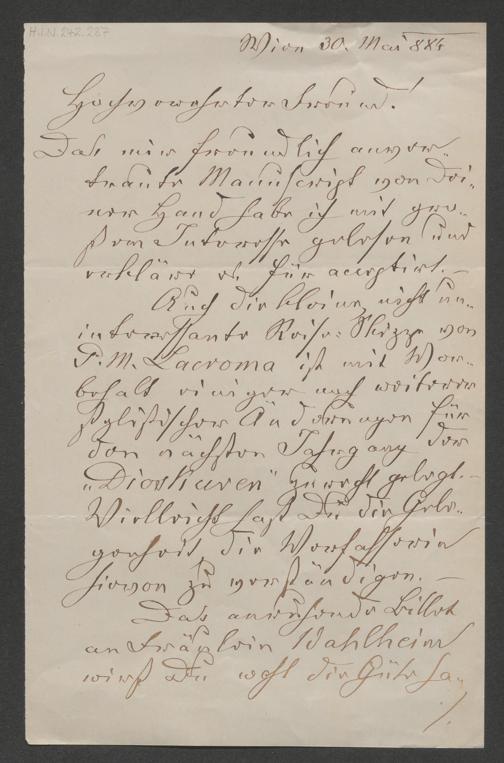 H.I.N. 242.287
Wien 30. Mai 884
Hochverehrter Freund!
Das mir freundlich anver-
traute Manuscript von Dei-
ner Hand habe ich mit gro-
ßem Interesse gelesen und
erkläre es für acceptirt. –
Auch die kleine, nicht un-
interessante Reise-Skizze von
P. M. Lacroma ist mit Vor-
behalt einiger noch weiterer
stylistischer Änderungen für
den nächsten Jahrgang der
"Dioskuren" zurecht gelegt. –
Vielleicht hast Du die Gele-
genheit, die Verfasserin
hievon zu verständigen. –
Das anruhende Billet
an Fräulein Wahlheim
wirst Du wohl die Güte ha-
./.